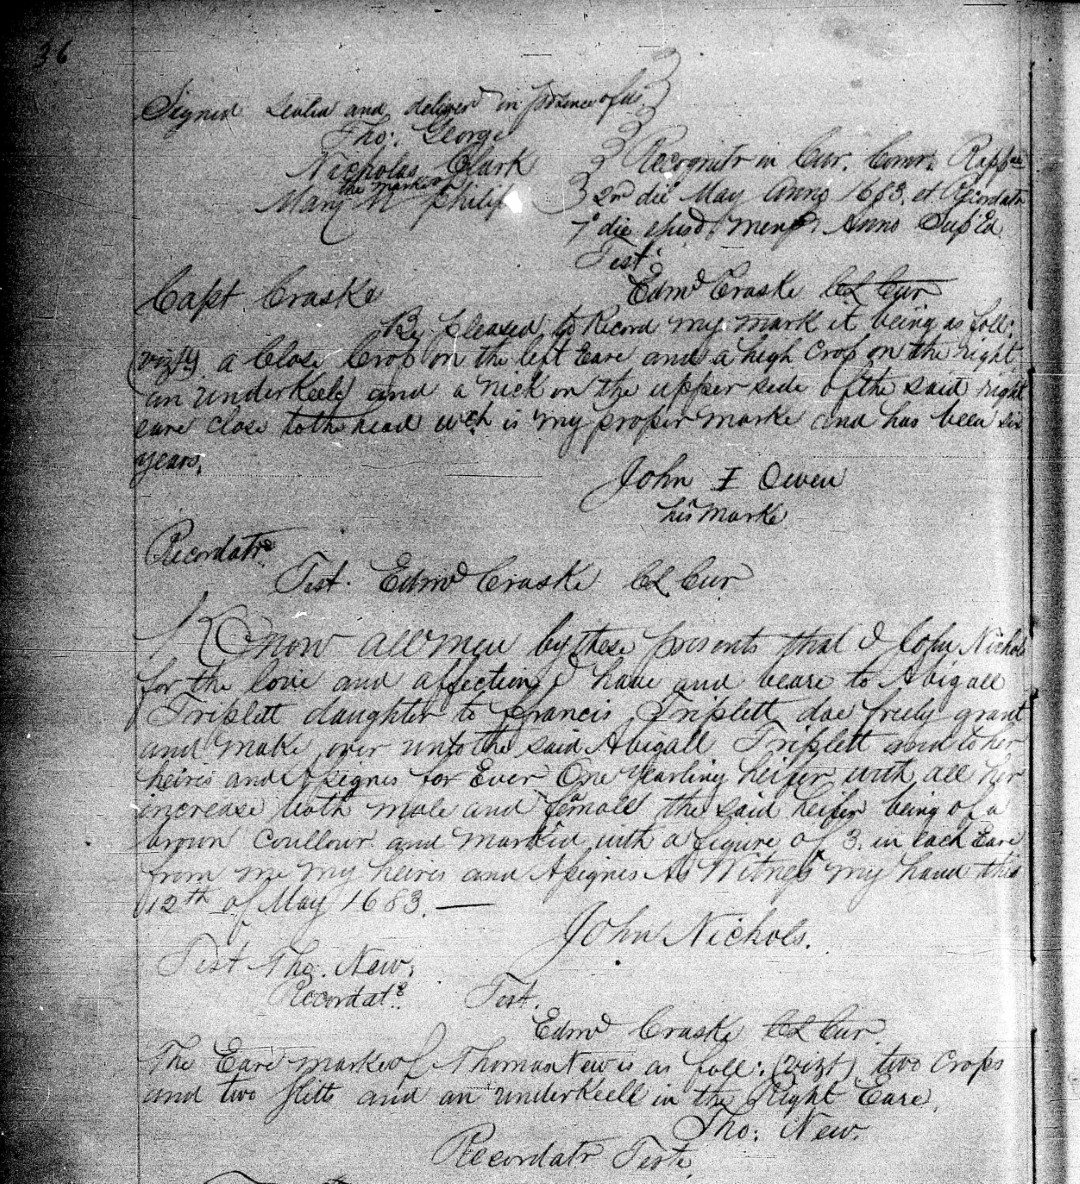 36
Signed Sealed and deliver in presence of us
Tho: George
Nicholas Clark
the marke of
Mary M Philip
Recognitr in Cur. Com. Rappae
2nd die May Anno 1683. et Recordatr
7o die ejusd mensis Anno Supd
Test
Edmd Craske Cl Cur
Capt Craske
Be pleased to Record my mark it being as foll:
(vizt) a Close Crop on the left Eare and a high Crop on the right
an underkeele and a nick on the upper side of the said right
eare close to the head wch is my proper marke and has been six
years.
John I Owen
his marke
Recordatr
Test. Edmd Craske Cl Cur
Know all men by these presents that I John Nichols
for the love and affection I have and beare to Abigall
Triplett daughter to Francis Triplett doe freely grant
and make over unto the said Abigall Triplett and to her
heires and Assignes for Ever One Yearling heifer with all her
increase both male and female the said heifer being of a
brown Coullour and marked with a figure of 3. in each Eare
from me my heires and Assignes As Witness my hand this
12th of May 1683. —
John Nichols.
Test Tho. New.
Recordatr
Test.
Edmd Craske Cl Cur.
The Eare marke of Thomas New is as foll: (vizt) two Crops
and two slitts and an underkeell in the Right Eare.
Tho: New.
Recordatr Teste